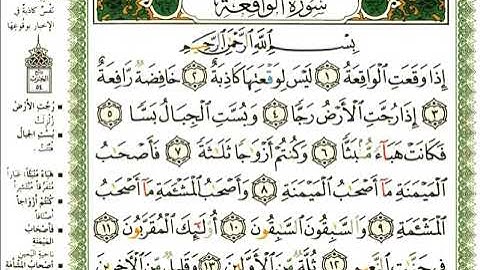 سُورَةُ الوَاقِعَةِ
بِسْمِ اللَّهِ الرَّحْمَٰنِ الرَّحِيمِ
إِذَا وَقَعَتِ الْوَاقِعَةُ ١ لَيْسَ لِوَقْعَتِهَا كَاذِبَةٌ ٢ خَافِضَةٌ رَّافِعَةٌ
٣ إِذَا رُجَّتِ الْأَرْضُ رَجًّا ٤ وَبُسَّتِ الْجِبَالُ بَسًّا ٥
فَكَانَتْ هَبَاءً مُّنۢبَثًّا ٦ وَكُنتُمْ أَزْوَاجًا ثَلَاثَةً ٧ فَأَصْحَابُ
الْمَيْمَنَةِ مَا أَصْحَابُ الْمَيْمَنَةِ ٨ وَأَصْحَابُ الْمَشْـَٔمَةِ مَا أَصْحَابُ
الْمَشْـَٔمَةِ ٩ وَالسَّابِقُونَ السَّابِقُونَ ١٠ أُولَٰئِكَ الْمُقَرَّبُونَ ١١
فِي جَنَّاتِ النَّعِيمِ ١٢ ثُلَّةٌ مِّنَ الْأَوَّلِينَ ١٣ وَقَلِيلٌ مِّنَ الْآخِرِينَ
نفس كاذبة في
الإخبار بوقوعها
رُجَّتِ الأَرْضُ
بُسَّتِ الجِبَالُ
هَبَاءً مُنْبَثًّا: غباراً
متفرقاً منتشراً
كُنْتُمْ أَزْوَاجًا
أصنافاً
فَأَصْحَابُ
المَيْمَنَةِ
ناحية اليمين
أَصْحَابُ المَشْأَمَةِ